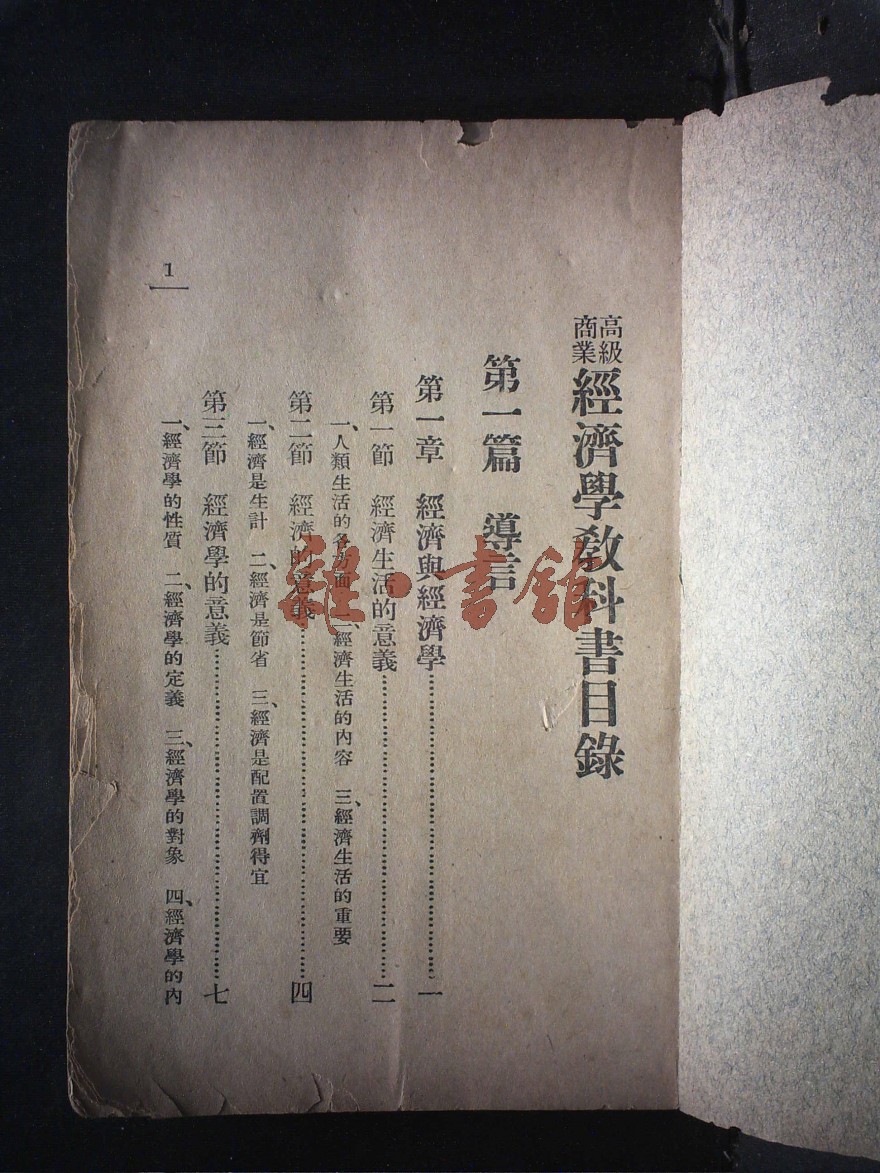 高級
商業
經濟學教科書目錄
第一篇　導言
第一章　經濟與經濟學……一
第一節　經濟生活的意義……二
一、人類生活的各方面　二、經濟生活的內容　三、經濟生活的重要
第二節　經濟的意義……四
一、經濟是生計　二、經濟是節省　三、經濟是配置調劑得宜
第三節　經濟學的意義……七
一、經濟學的性質　二、經濟學的定義　三、經濟學的對象　四、經濟學的內
1
雜·書館